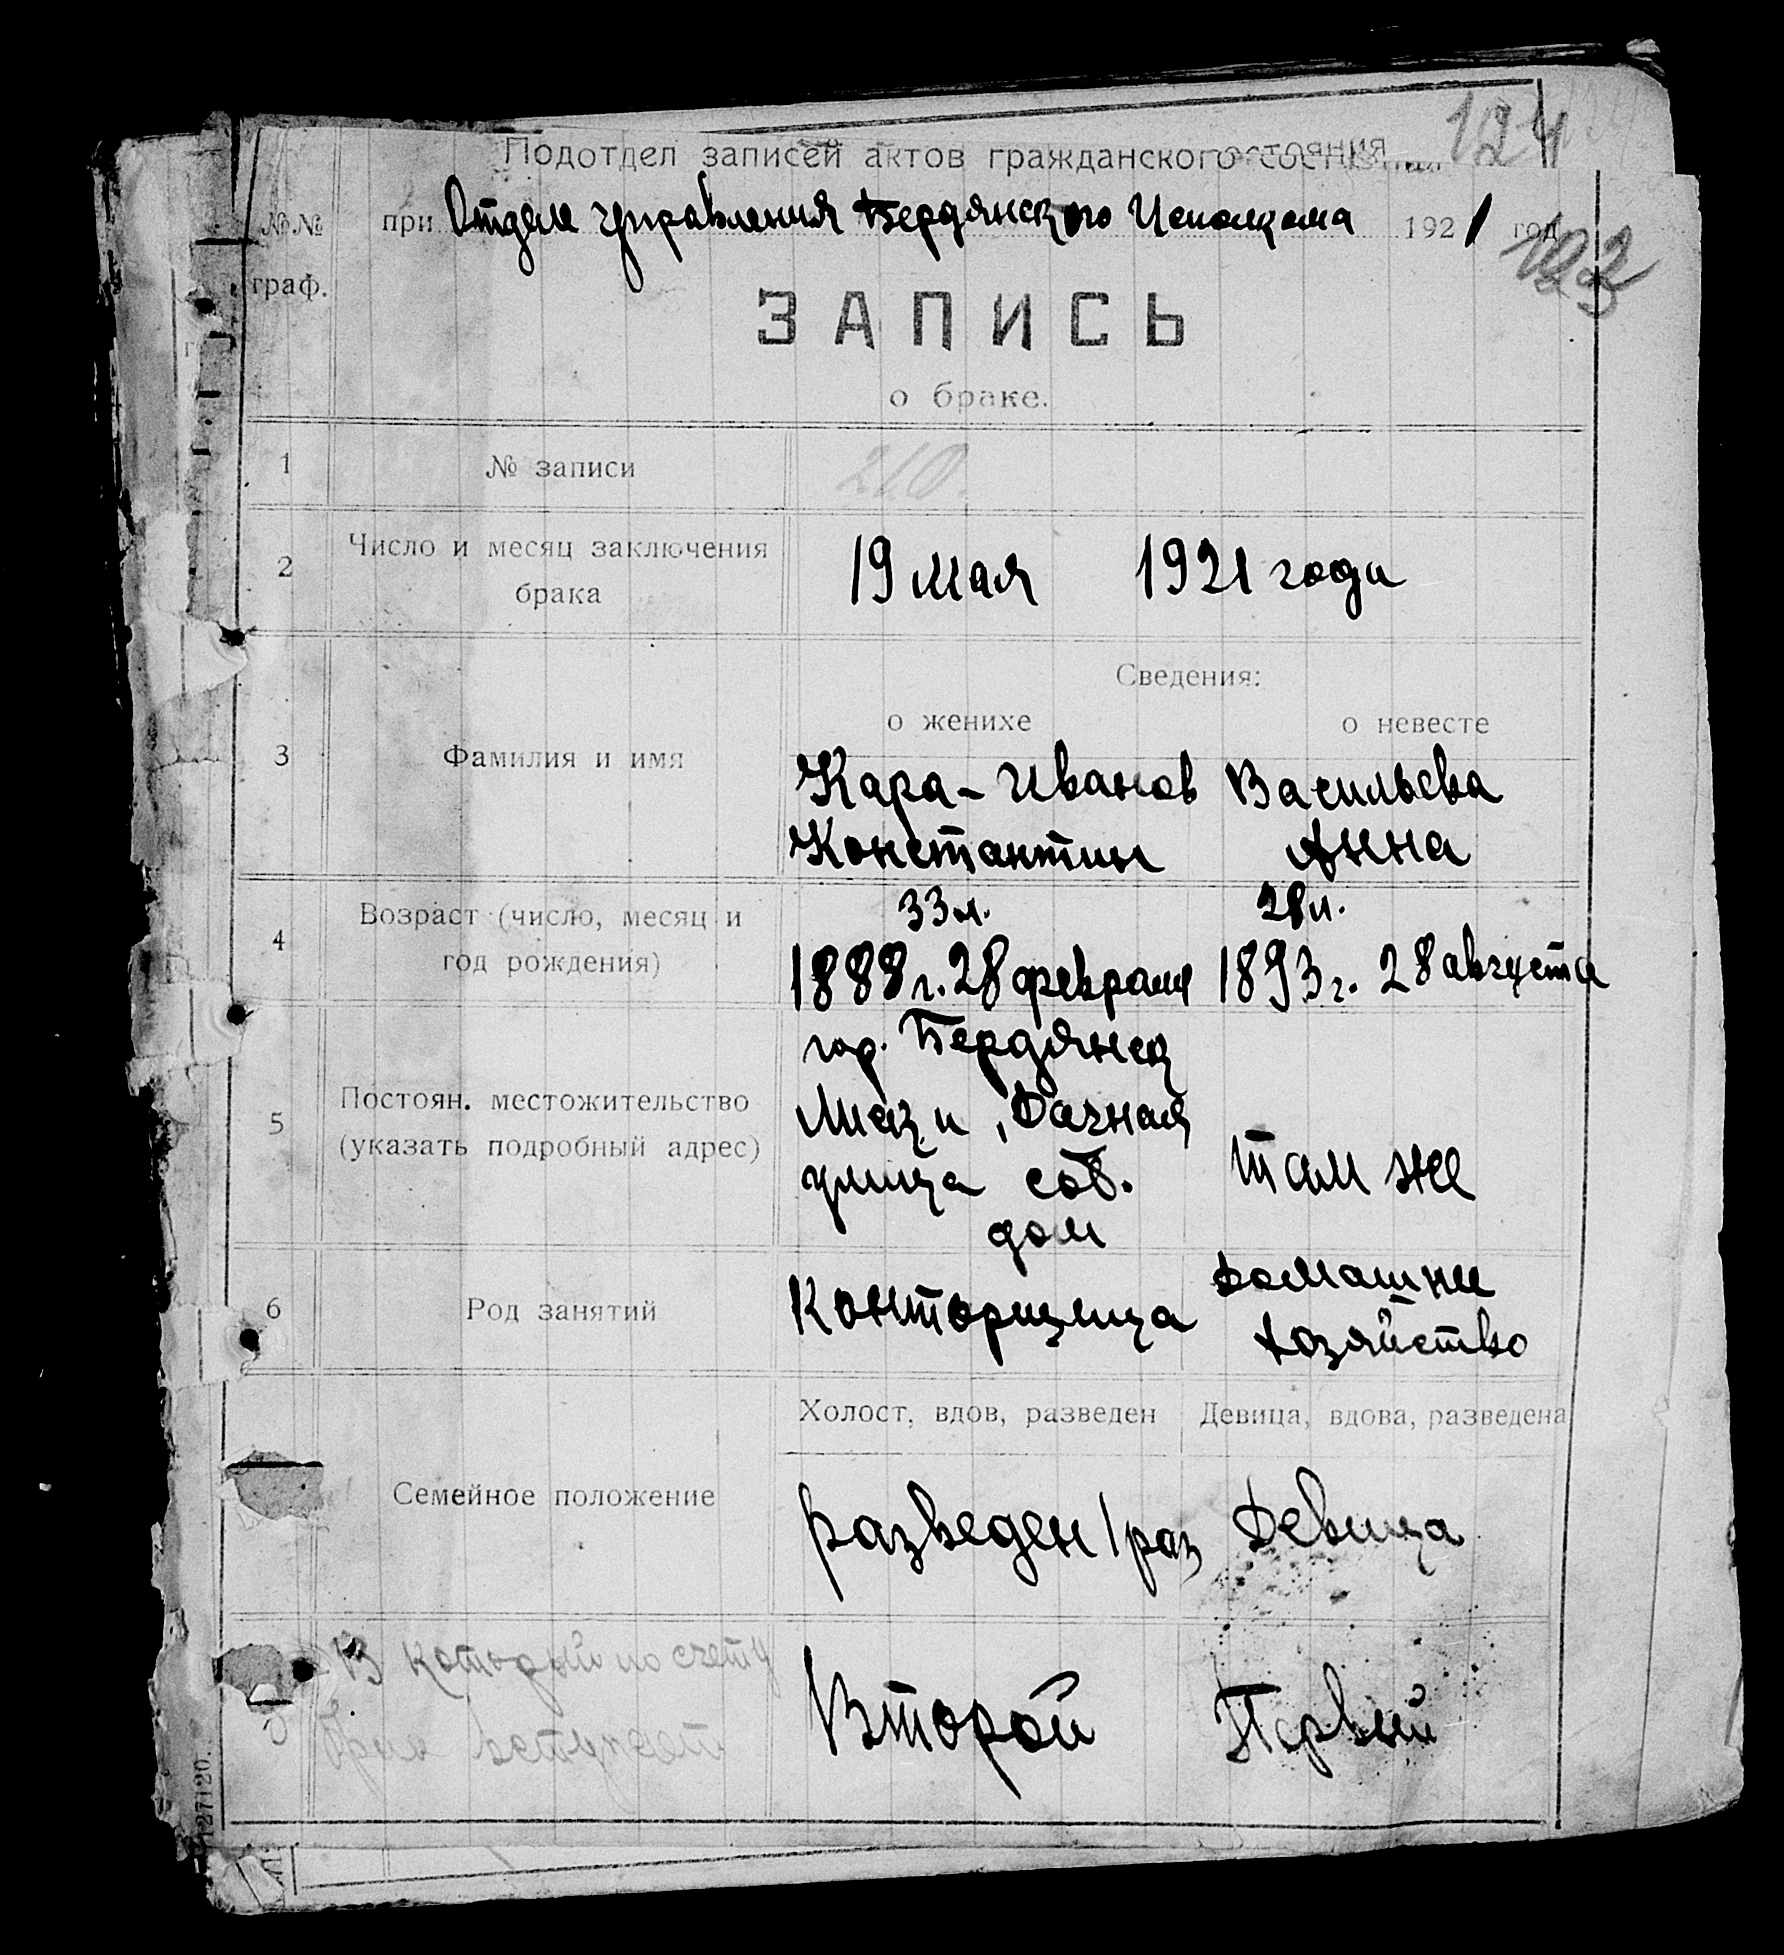 124
Подотдел записей актов гражданского состояния
№№ граф.
при Отделе управления Бердянского Исполкома 1921 год
123
ЗАПИСЬ
о браке.
1 № записи 210.
2 Число и месяц заключения брака
19 мая 1921 года
Сведения:
о женихе о невесте
3 Фамилия и имя
Кара-Иванов Васильева
Константин Анна
4 Возраст (число, месяц и
год рождения)
33 л. 28 л.
1888 г. 28 февраля 1893 г. 28 августа
5 Постоян. местожительство
(указать подробный адрес)
гор. Бердянск
Лиски, Дачная
улица соб. там же
дом
6 Род занятий
Конторщица Домашнее
хозяйство
Холост, вдов, разведен Девица, вдова, разведена
Семейное положение
разведен 1 раз Девица
В который по счету
брак вступает
Второй Первый
127120.